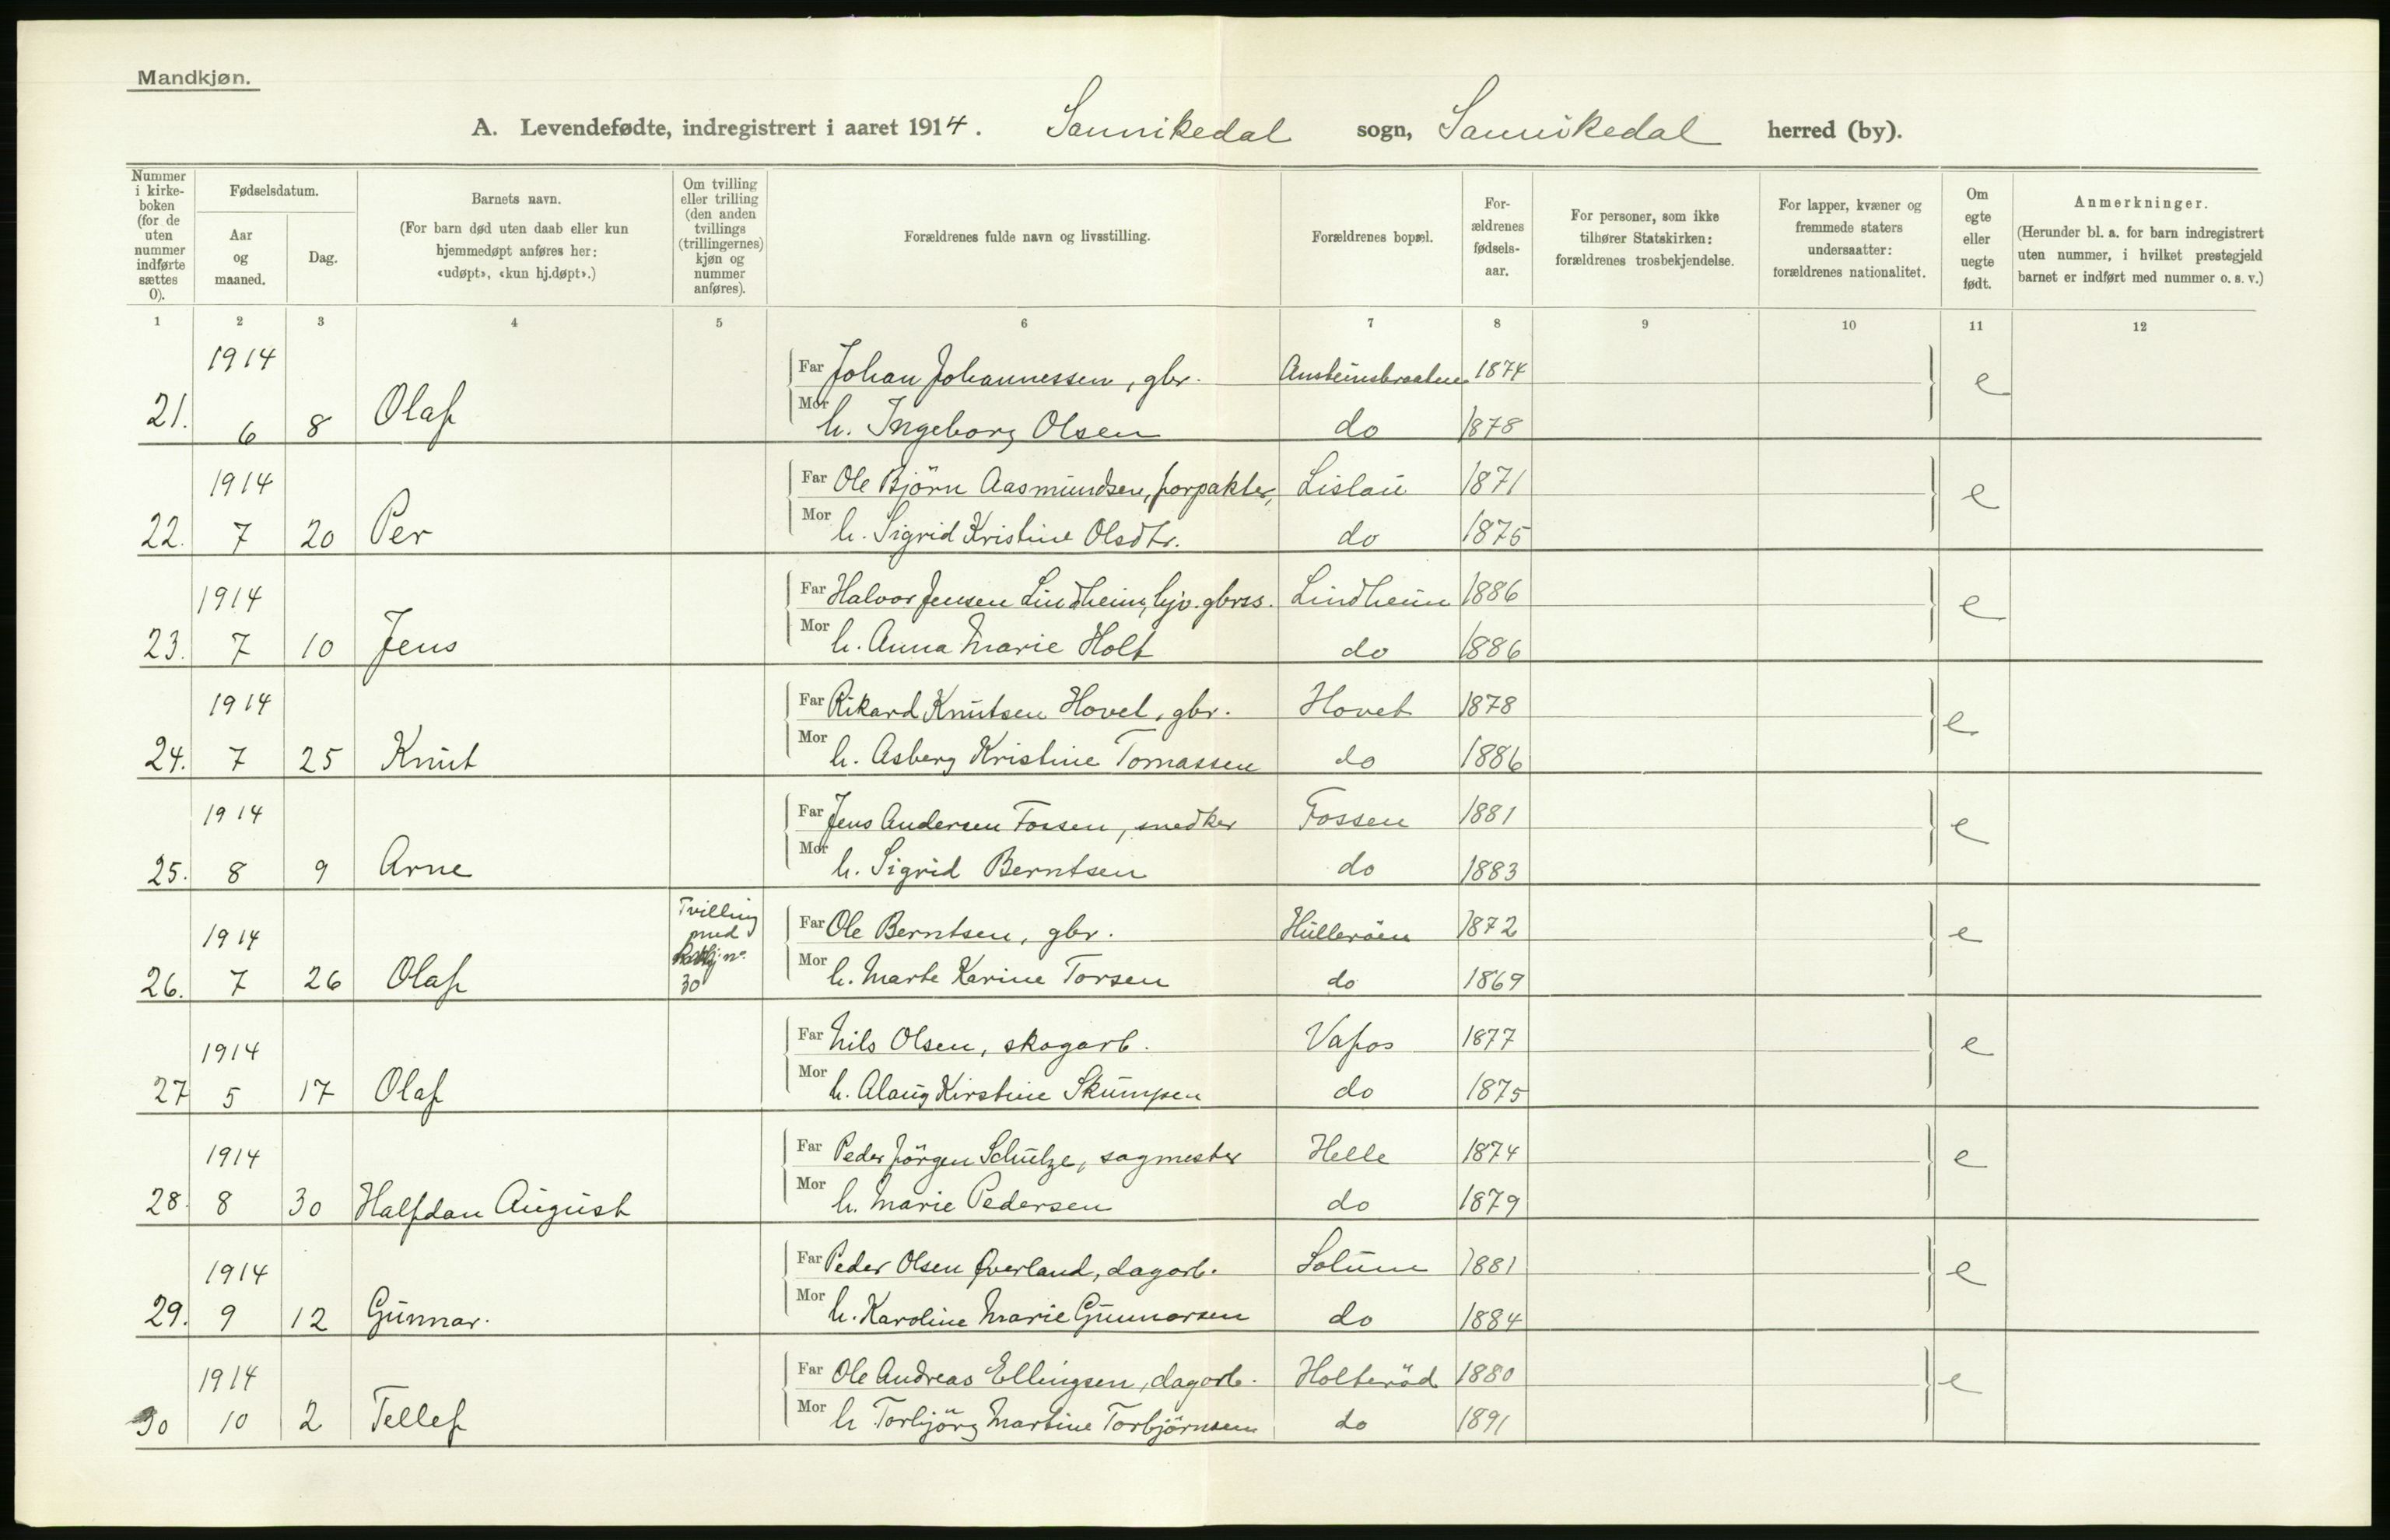 Mandkjøn.
A. Levendefødte, indregistrert i aaret 1914. Sannikedal sogn, Sannikedal herred (by).
Nummer i kirke-boken (for de uten nummer indførte sættes 0).
Fødselsdatum.
Aar og maaned.
Dag.
Barnets navn.
(For barn død uten daab eller kun hjemmedøpt anføres her: «udøpt», «kun hj.døpt».)
Om tvilling eller trilling (den anden tvillings (trillingernes) kjøn og nummer anføres).
Forældrenes fulde navn og livsstilling.
Forældrenes bopæl.
For-ældrenes fødsels-aar.
For personer, som ikke tilhører Statskirken: forældrenes trosbekjendelse.
For lapper, kvæner og fremmede staters undersaatter: forældrenes nationalitet.
Om egte eller uegte født.
Anmerkninger.
(Herunder bl. a. for barn indregistrert uten nummer, i hvilket prestegjeld barnet er indført med nummer o. s. v.)
1 2 3 4 5 6 7 8 9 10 11 12
1914 Far Johan Johannessen, gbr. Austeinsbraaten 1874 e
21. 6 8 Olaf Mor h. Ingeborg Olsen do 1878
1914 Far Ole Björn Aasmundsen, forpakter, Lislau 1871 e
22. 7 20 Per Mor h. Sigrid Kristine Olsdtr. do 1875
1914 Far Halvor Jensen Lindheim, hjv. gbrss. Lindheim 1886 e
23. 7 10 Jens Mor h. Anna Marie Holt do 1886
1914 Far Rikard Knutsen Hovet, gbr. Hovet 1878 e
24. 7 25 Knut Mor h. Asberg Kristine Tomassen do 1886
1914 Far Jens Andersen Fossen, snedker Fossen 1881 e
25. 8 9 Arne Mor h. Sigrid Berntsen do 1883
1914 Tvilling med Far Ole Berntsen, gbr. Hulleröen 1872 e
26. 7 26 Olaf no. 30 Mor h. Marte Karine Torsen do 1869
1914 Far Nils Olsen, skogarb. Vafos 1877 e
27 5 17 Olaf Mor h. Alaug Kirstine Skumpen do 1875
1914 Far Peder Jörgen Schulze, sagmester Helle 1874 e
28. 8 30 Halfdan August Mor h. Marie Pedersen do 1879
1914 Far Peder Olsen Øverland, dagarb. Solum 1881 e
29. 9 12 Gunnar. Mor h. Karoline Marie Gunnarsen do 1884
1914 Far Ole Andreas Ellingsen, dagarb. Holteröd 1880 e
30 10 2 Tellef Mor h Torbjörg Martine Torbjörnsen do 1891